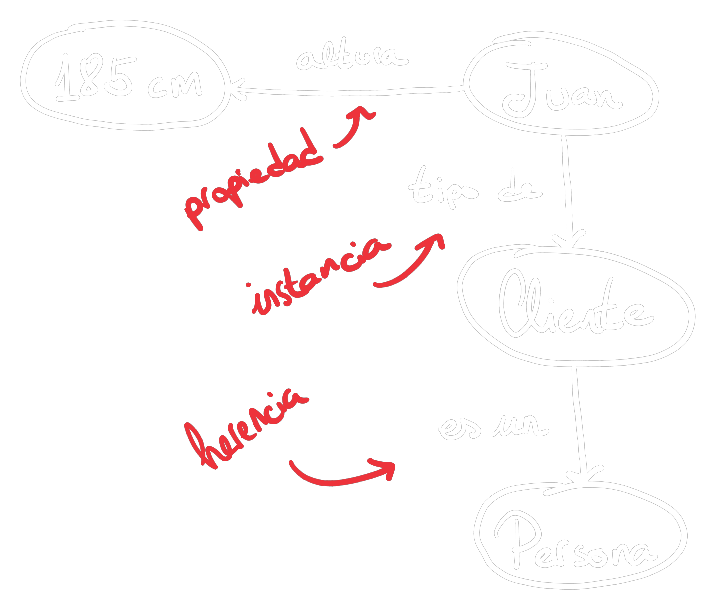 185 cm
altura
Juan
propiedad
tipo de
instancia
Cliente
herencia
es un
Persona